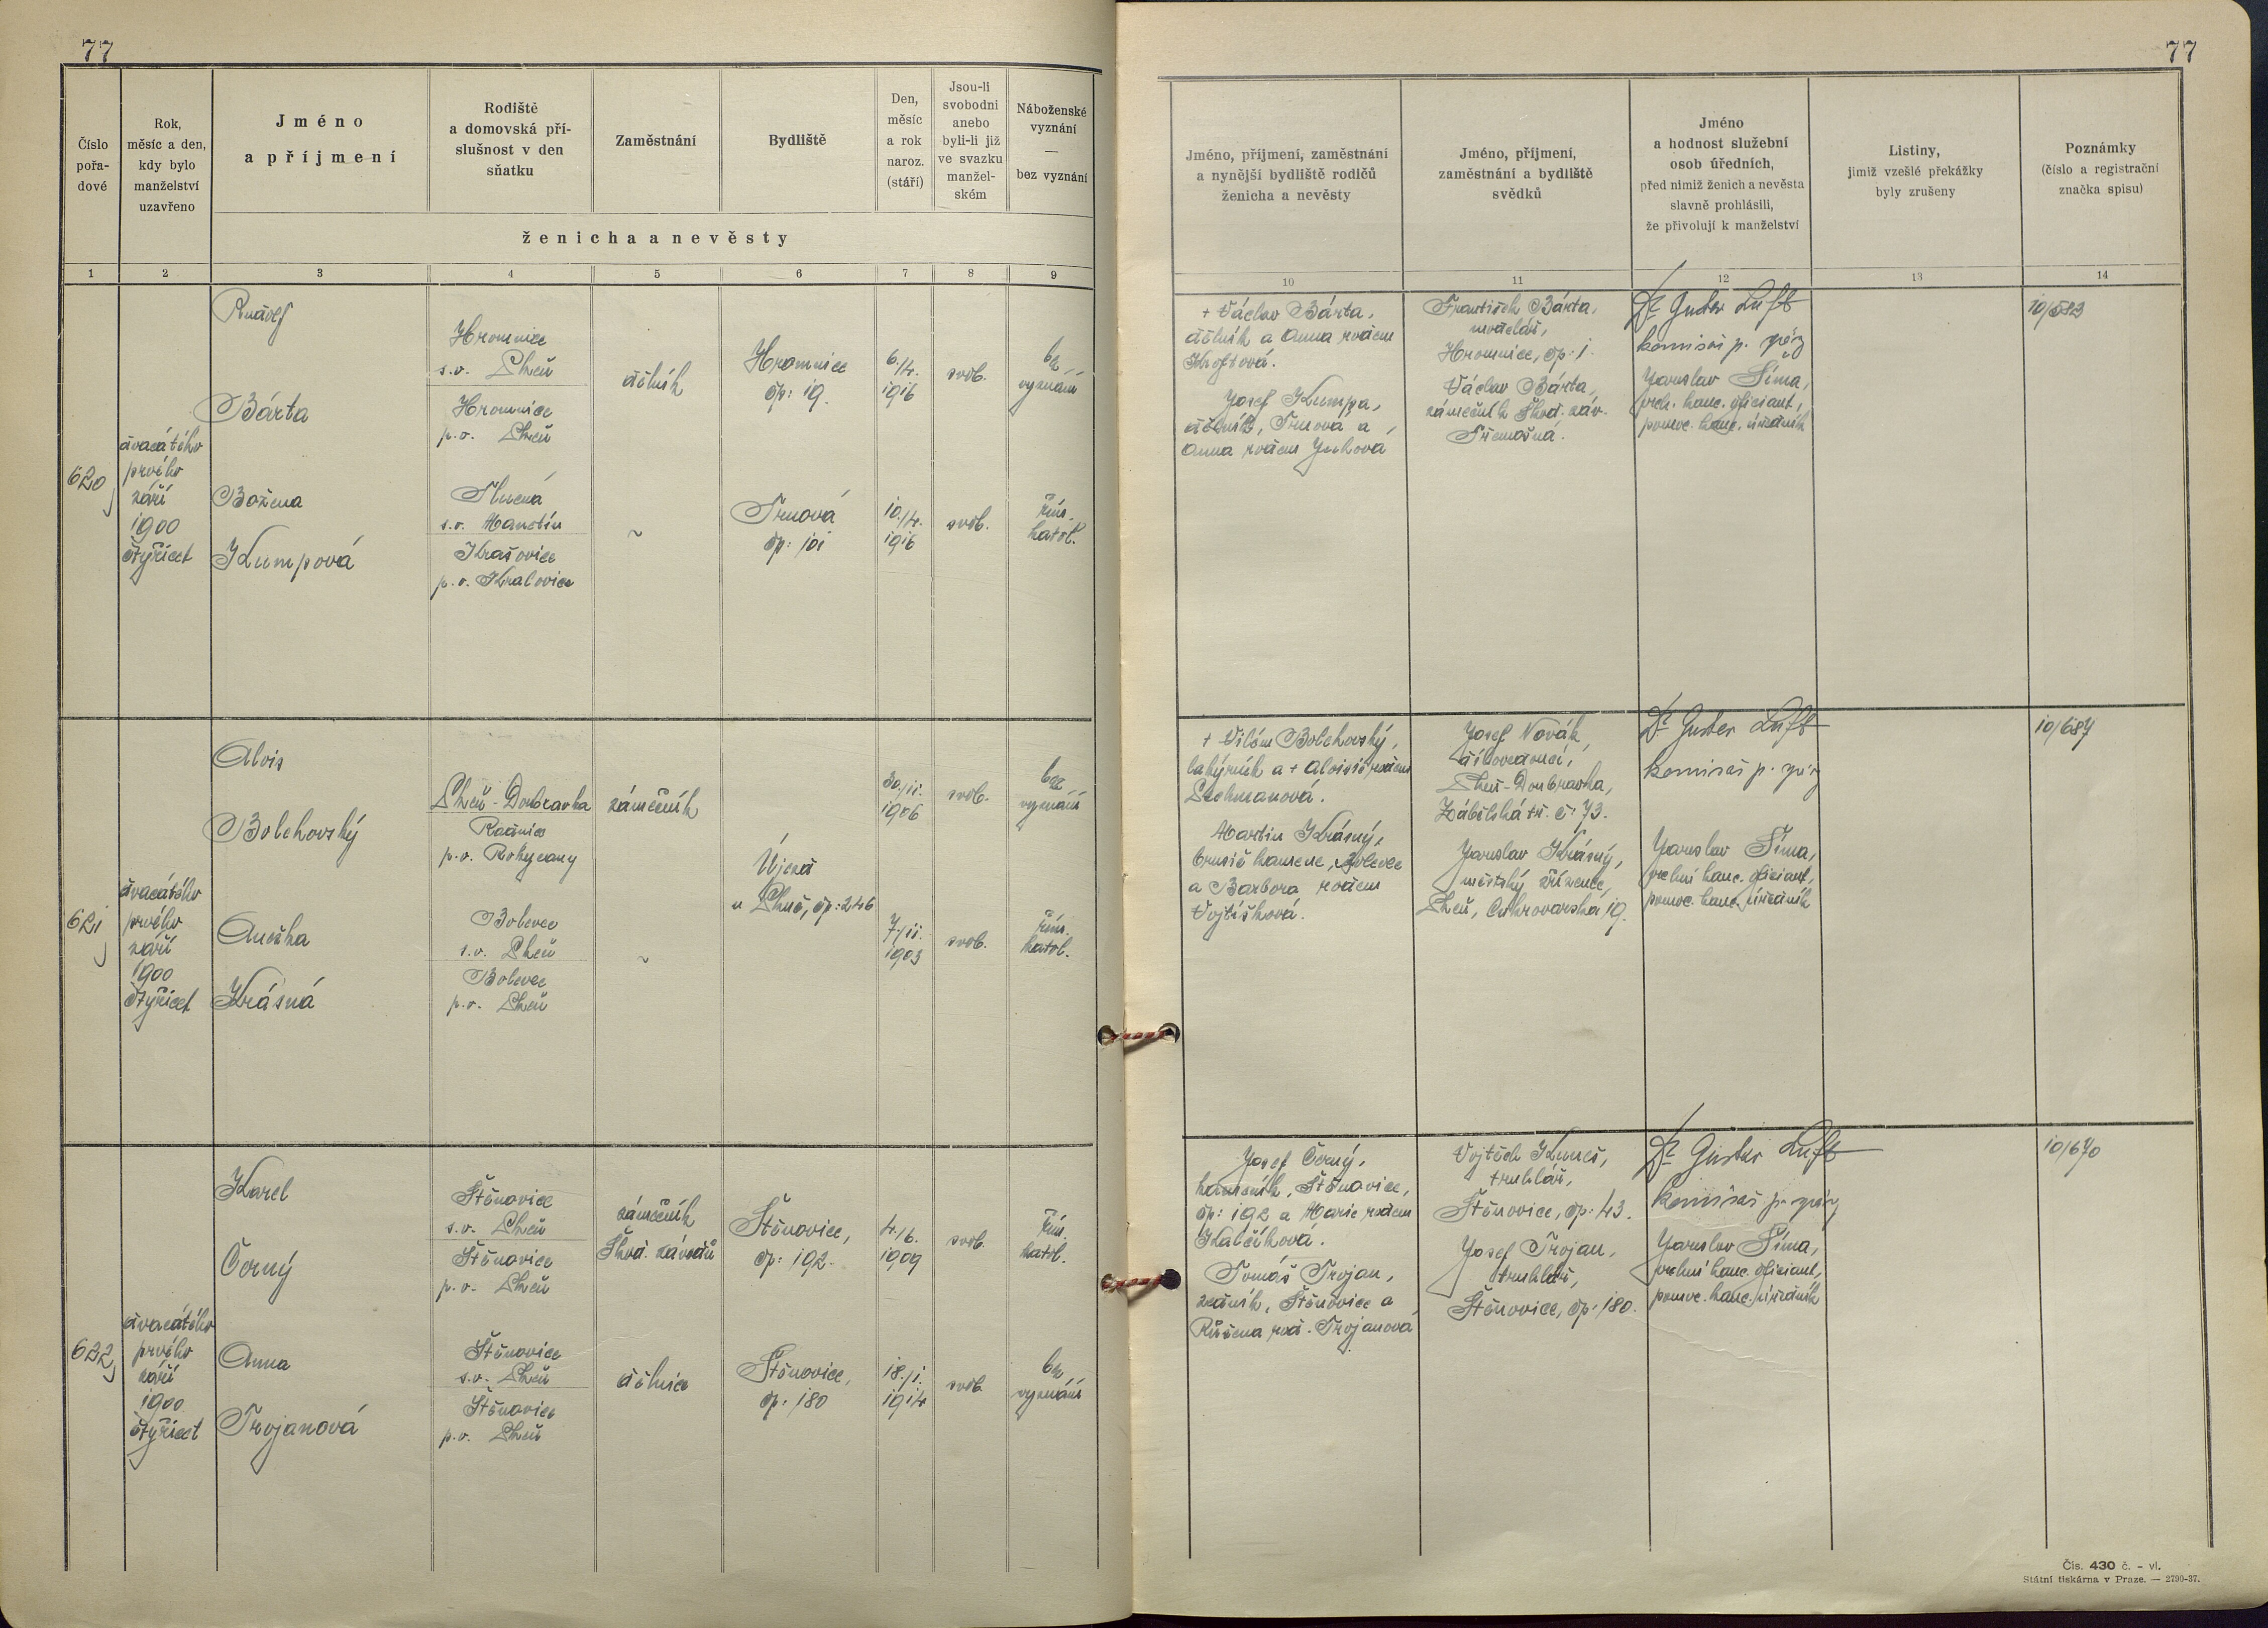 77
77
Číslo
pořa-
dové
Rok,
měsíc a den,
kdy bylo
manželství
uzavřeno
Jméno
a příjmení
Rodiště
a domovská pří-
slušnost v den
sňatku
Zaměstnání
Bydliště
Den,
měsíc
a rok
naroz.
(stáří)
Jsou-li
svobodni
anebo
byli-li již
ve svazku
manžel-
ském
Náboženské
vyznání
—
bez vyznání
ženicha a nevěsty
Jméno, příjmení, zaměstnání
a nynější bydliště rodičů
ženicha a nevěsty
Jméno, příjmení,
zaměstnání a bydliště
svědků
Jméno
a hodnost služební
osob úředních,
před nimiž ženich a nevěsta
slavně prohlásili,
že přivolují k manželství
Listiny,
jimiž vzešlé překážky
byly zrušeny
Poznámky
(číslo a registrační
značka spisu)
1 2 3 4 5 6 7 8 9 10 11 12 13 14
620
dvacátého
prvého
září
1900
čtyřicet
Rudolf
Bárta
Hromnice
s.o. Plzeň
Hromnice
p.o. Plzeň
dělník
Hromnice
čp: 19.
6./4.
1916
svob.
bez
vyznání
Božena
Klumpová
Hlucná
s.o. Manětín
Krašovice
p.o. Kralovice
~
Trnová
čp: 101
10./4.
1916
svob.
řím.
katol.
+ Václav Bárta,
dělník a Anna rozem
Kroftová.
Josef Klumpa,
dělník, Trnová a
Anna rozem
František Bárta,
Hromnice, čp: 1.
Václav Bárta,
zámečník Škod. záv.
Třemošná.
Dr Gustav Luft
komisař p. správy
Jaroslav Šíma,
vrch. kanc. oficiant,
pomoc. kanc. úředník
10/583
621
dvacátého
prvého
září
1900
čtyřicet
Alois
Bolehovský
Plzeň-Doubravka
Radnice
p.o. Rokycany
zámečník
Újezd
u Plzně, čp: 246
30./11.
1906
svob.
bez
vyznání
Anežka
Krásná
Bolevec
s.o. Plzeň
Bolevec
p.o. Plzeň
~
7./11.
1903
svob.
řím.
katol.
+ Vilém Bolehovský,
lahýrník a + Aloisie rozem
Lechmanová.
Martin Krásný,
brusič kamene, Bolevec
a Barbora rozem
Vojtíšková.
Josef Novák,
dílovedoucí,
Plzeň-Doubravka,
Zábělská tř. č: 73.
Jaroslav Krásný,
městský zřízenec,
Plzeň, Cukrovarská 19.
Dr Gustav Luft
komisař p. správy
Jaroslav Šíma,
vrchní kanc. oficiant,
pomoc. kanc. úředník
10/687
622
dvacátého
prvého
září
1900
čtyřicet
Karel
Černý
Štěnovice
s.o. Plzeň
Štěnovice
p.o. Plzeň
zámečník
Škod. závodů
Štěnovice,
čp: 192.
4./6.
1909
svob.
řím.
katol.
Anna
Trojanová
Štěnovice
s.o. Plzeň
Štěnovice
p.o. Plzeň
dělnice
Štěnovice,
čp: 180
18./1.
1914
svob.
bez
vyznání
Josef Černý,
kameník, Štěnovice,
čp: 192 a Marie rozem
Kalčíková.
Tomáš Trojan,
zedník, Štěnovice a
Růžena roz. Trojanová
Vojtěch Kuneš,
truhlář,
Štěnovice, čp: 43.
Josef Trojan,
truhlář,
Štěnovice, čp: 180.
Dr Gustav Luft
komisař p. správy
Jaroslav Šíma,
vrchní kanc. oficiant,
pomoc. kanc. úředník
10/670
Čís. 430 č. - vl.
Státní tiskárna v Praze. — 2790-37.